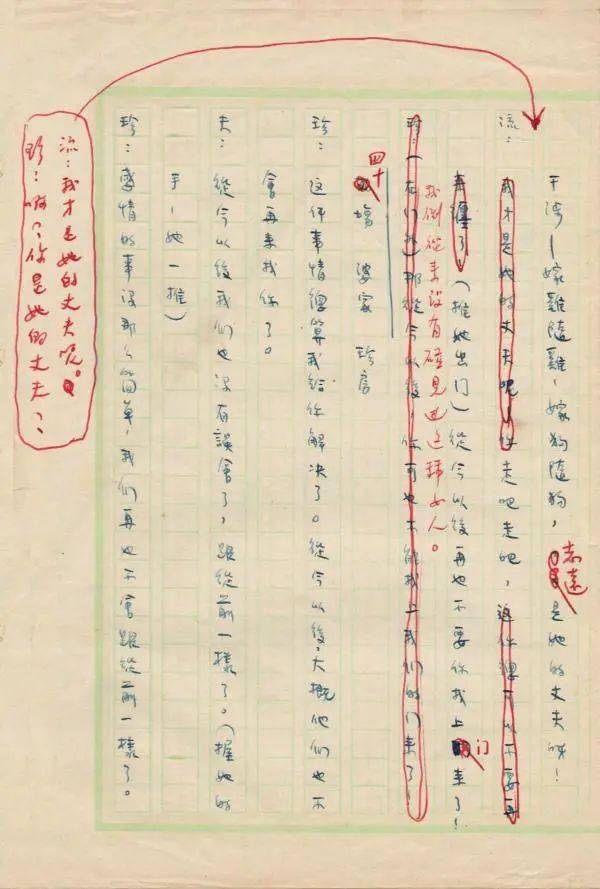 干涉！嫁雞隨雞，嫁狗隨狗，志遠是她的丈夫呀！
流：我才是她的丈夫呢！你走吧走吧，這你總可以不要再
來纏了！（推她出门）從今以後再也不要你找上门来了！
我倒從来没有碰見过这种女人。
珍：（在门外）那從今以後，你可也不能找上我们的门来了！
四十場 婆家 珍房
珍：这件事情總算我给你解决了。從今以後，大概他们也不
會再来找你了。
夫：從今以後我们也没有誤會了，跟從前一樣了。（握她的
手，她一推）
珍：感情的事没那么简单，我们再也不會跟從前一樣了。
流：我才是她的丈夫呢。
珍：啊？你是她的丈夫？